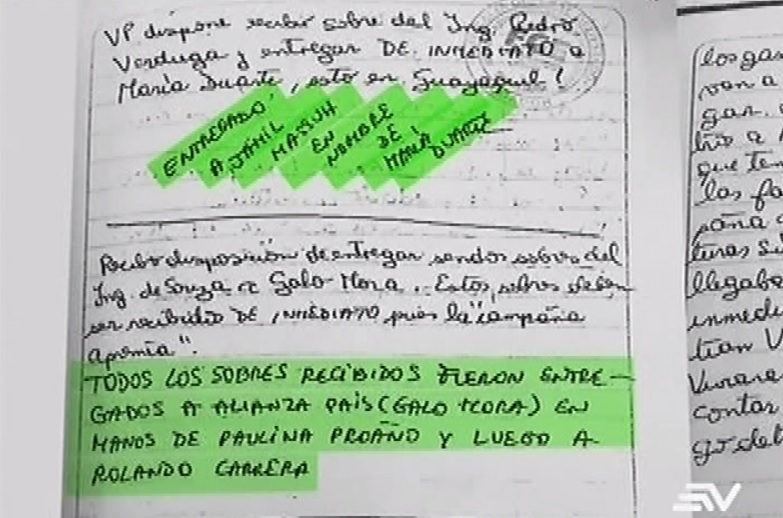 VP dispone recibir sobre del Ing. Pedro
Verduga y entregar DE INMEDIATO a
María Duarte, esto en Guayaquil!
ENTREGADO
A JAMIL
MASSUH
EN
NOMBRE
DE
MARIA
DUARTE
Recibo disposición de entregar sendos sobres del
Ing. de Souza a Galo Mora. Estos sobres deben
ser recibidos DE INMEDIATO pues la "campaña
apremia".
TODOS LOS SOBRES RECIBIDOS FUERON ENTRE-
GADOS A ALIANZA PAÍS (GALO MORA) EN
MANOS DE PAULINA PROAÑO Y LUEGO A
ROLANDO CARRERA
los gas
van a
gar.
que ten
las fa
paña
turas su
llegaba
inmedi
tían V
contas